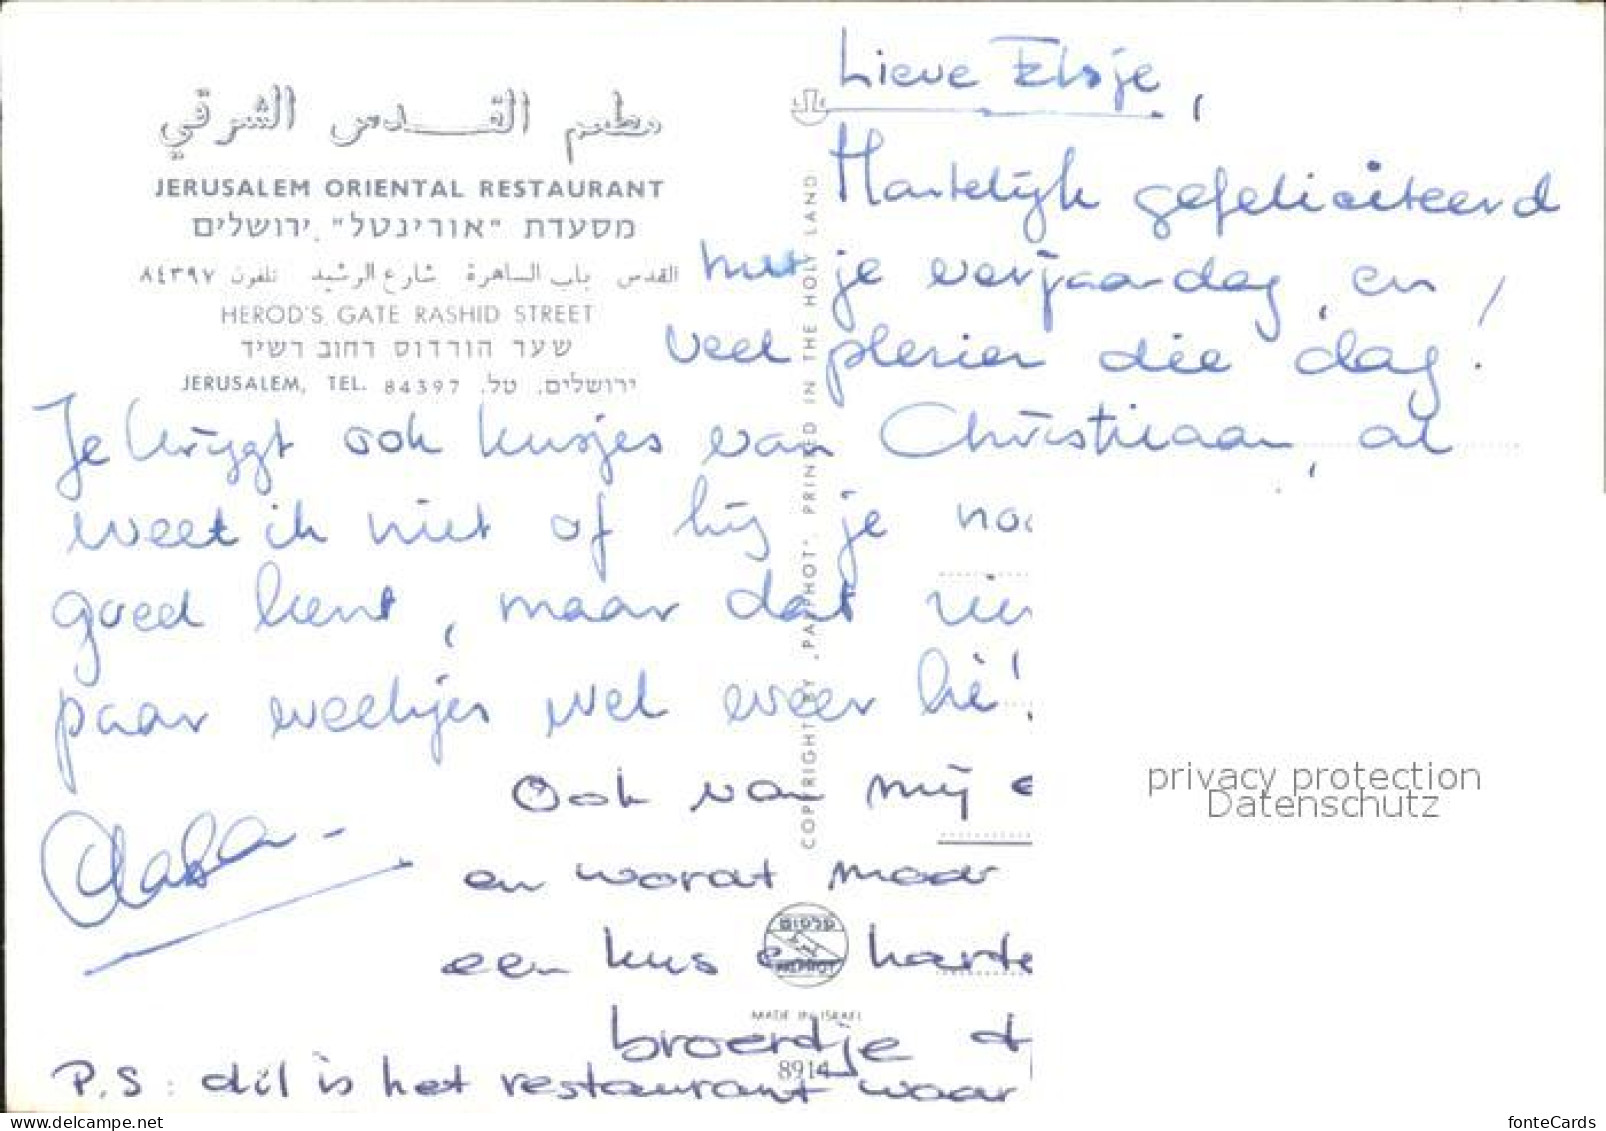 مطعم القدس الشرقي
JERUSALEM ORIENTAL RESTAURANT
מסעדת "אורינטל" ירושלים
القدس باب الساهرة شارع الرشيد تلفون ٨٤٣٩٧
HEROD'S GATE RASHID STREET
שער הורדוס רחוב רשיד
JERUSALEM, TEL. 84397 .ירושלים. טל
COPYRIGHT BY "PALPHOT". PRINTED IN THE HOLY LAND
Lieve Elsje,
Hartelijk gefeliciteerd
met je verjaardag, en
veel plezier die dag!
Je krijgt ook kusjes van Christiaan, al
weet ik niet of hij je
goed kent, maar dat
paar weekjes wel weer
Ook van mij
en vooral maar
een kus
broertje
P.S: dit is het restaurant waar
פלפוט
PALPHOT
MADE IN ISRAEL
8914
privacy protection
Datenschutz
fonteCards